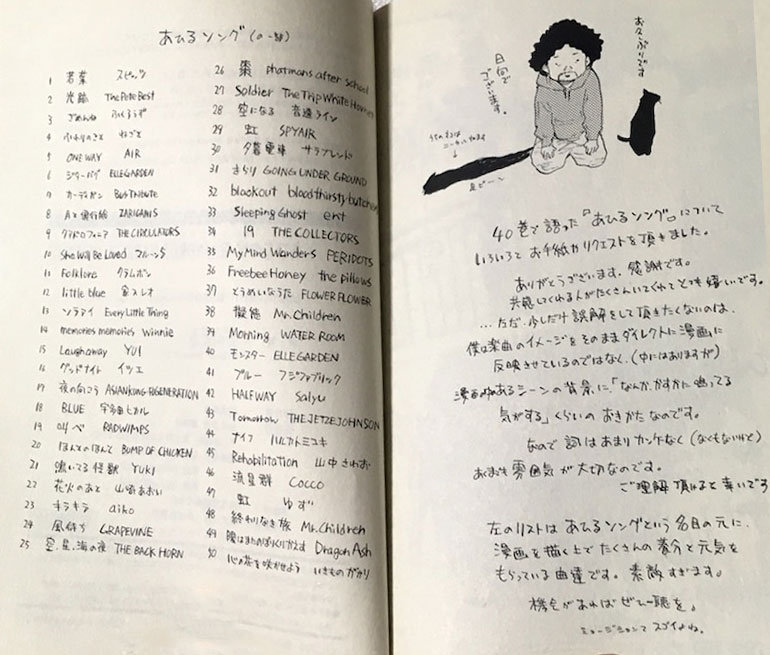 あひるソング(の一部)
1 若葉 スピッツ
2 光跡 The Pete Best
3 ごめんね ふくろうず
4 ふたりのこと ねごと
5 ONE WAY AIR
6 ジターバグ ELLEGARDEN
7 カーディガン BUSTRIBUTE
8 月と飛行船 ZARIGANI5
9 THE CIRCULATORS
10 She Will Be Loved マルーン5
11 Folklore クラムボン
12 little blue 金子レオ
13 ソラアイ Every Little Thing
14 memories memories Winnie
15 Laugh away YUI
16 グッドナイト イツエ
17 夜の向こう ASIAN KUNG-FU GENERATION
18 BLUE 宇多田ヒカル
19 叫べ RADWIMPS
20 ほんとのほんと BUMP OF CHICKEN
21 鳴いてる怪獣 YUKI
22 花火のあと 山崎あおい
23 キラキラ aiko
24 風待ち GRAPEVINE
25 空、星、海の夜 THE BACK HORN
26 棗 phatmans after school
27 Soldier The Trip White Hornet
28 空になる 音速ライン
29 虹 SPYAIR
30 夕暮電車 サラブレンド
31 さらり GOING UNDER GROUND
32 blackout bloodthirsty butchers
33 Sleeping Ghost ent
34 19 THE COLLECTORS
35 My Mind Wanders PERIDOTS
36 Freebee Honey the pillows
37 とうめいなうた FLOWER FLOWER
38 擬態 Mr.Children
39 Morning WATER ROOM
40 モンスター ELLEGARDEN
41 ブルー フジファブリック
42 HALFWAY Salyu
43 Tomorrow THE JETZEJOHNSON
44 ナイフ ハルカトミユキ
45 Rehabilitation 山中さわお
46 流星群 Cocco
47 虹 ゆず
48 終わりなき旅 Mr.Children
49 陽はまたのぼりくりかえす Dragon Ash
50 心の花を咲かせよう いきものがかり
お久しぶりです
日向で
ございます。
40巻で語った『あひるソング』について
いろいろとお手紙やリクエストを頂きました。
ありがとうございます。感謝です。
共感してくれる人がたくさんいてくれてとても嬉しいです。
…ただ、少しだけ誤解をして頂きたくないのは、
僕は楽曲のイメージをそのままダイレクトに漫画に
反映させているのではなく、(中にはありますが)
漫画のあるシーンの背景に、「なんか、かすかに鳴ってる
気がする」くらいのおきかたなのです。
なので詞はあまりカンケなく(なくもないけど)
あくまで雰囲気が大切なのです。
ご理解頂けると幸いです
左のリストはあひるソングという名目の元に、
漫画を描く上でたくさんの養分と元気を
もらっている曲達です。素敵すぎます。
機会があればぜひ一聴を。
ミュージシャンてスゴイよね。